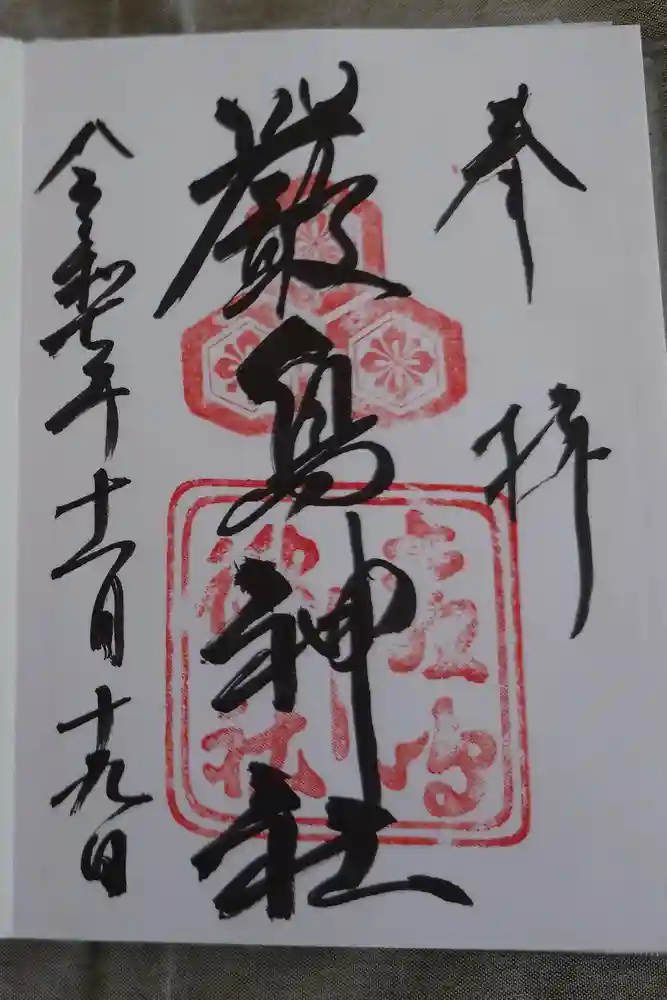 奉拝
嚴島神社
令和七年十一月十九日